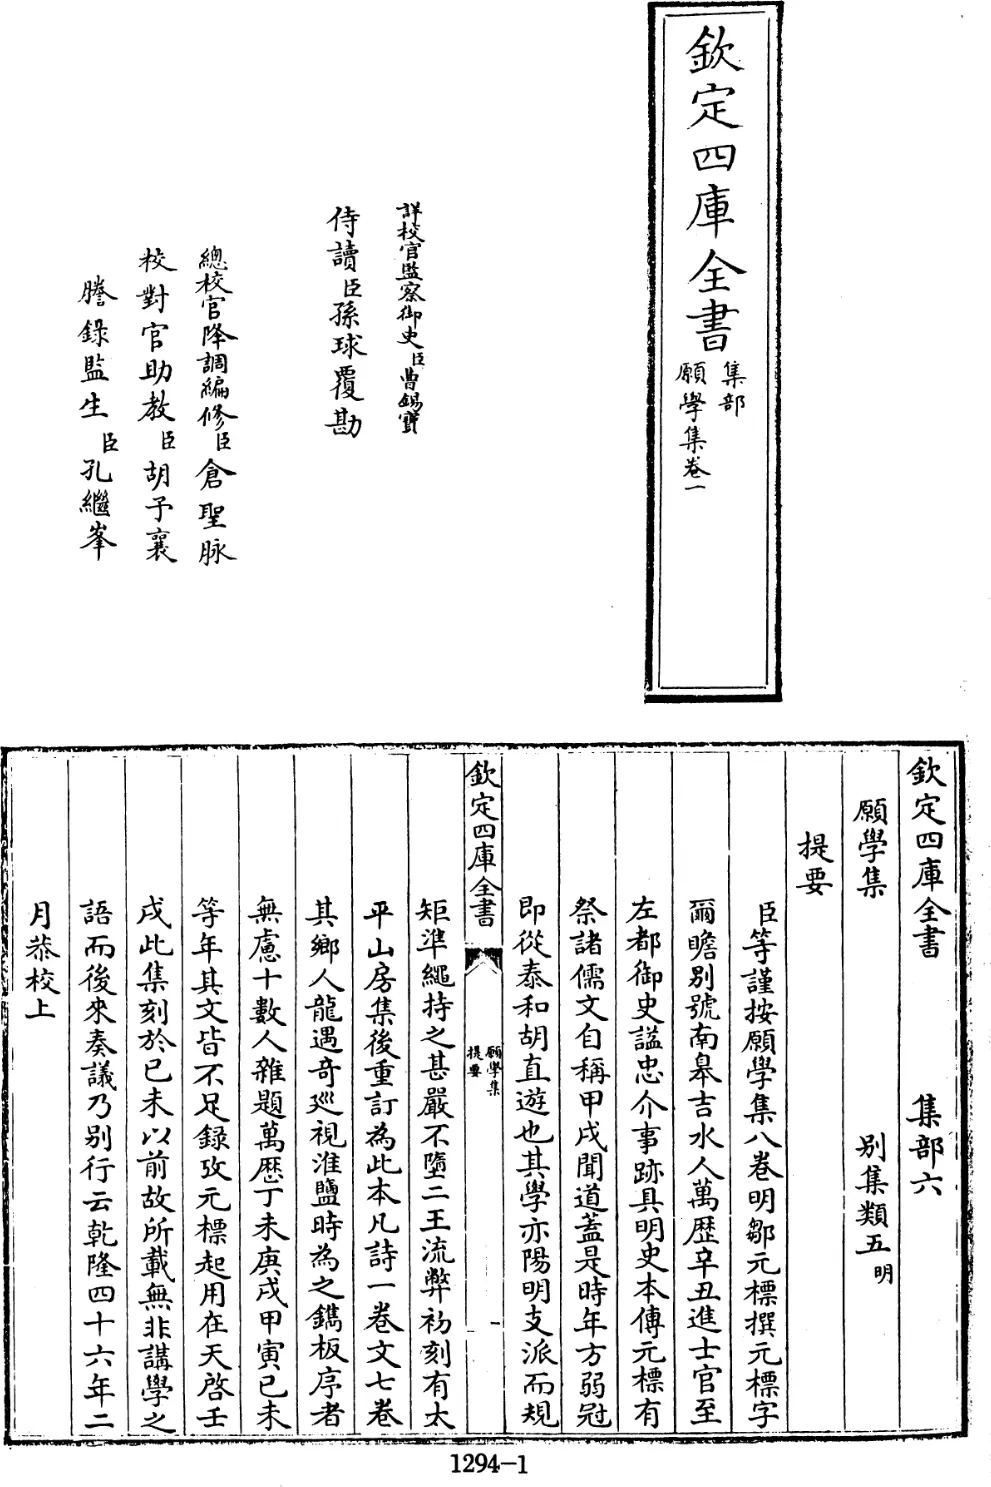 欽定四庫全書
集部
願學集卷一
詳校官監察御史臣曹錫寶
侍讀臣孫球覆勘
總校官降調編修臣倉聖脉
校對官助教臣胡予襄
謄錄監生臣孔繼峯
欽定四庫全書 集部六
願學集 别集類五明
提要
臣等謹按願學集八卷明鄒元標撰元標字
爾瞻别號南臯吉水人萬歷辛丑進士官至
左都御史諡忠介事跡具明史本傳元標有
祭諸儒文自稱甲戌聞道葢是時年方弱冠
即從泰和胡直遊也其學亦陽明支派而規
欽定四庫全書
願學集
提要
一
矩準繩持之甚嚴不墮二王流弊初刻有太
平山房集後重訂為此本凡詩一卷文七卷
其鄉人龍遇奇巡視淮鹽時為之鐫板序者
無慮十數人雜題萬歷丁未庚戌甲寅己未
等年其文皆不足録攷元標起用在天啓壬
戌此集刻於己未以前故所載無非講學之
語而後來奏議乃别行云乾隆四十六年二
月恭校上
1294-1